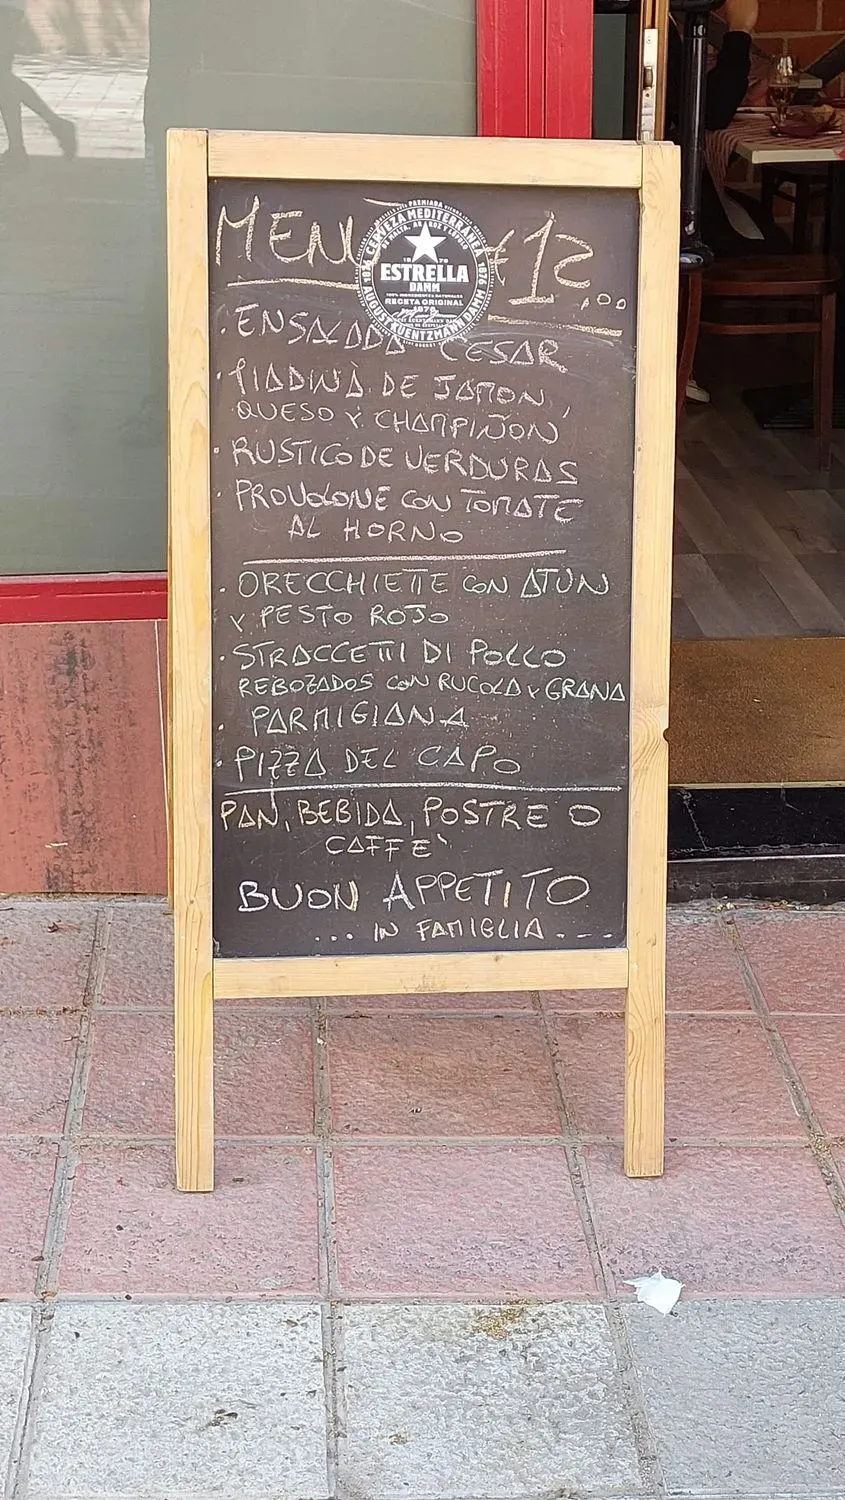 MENÙ €12,00
PREMIADA
CERVEZA MEDITERRÁNEA
DE MALTA, ARROZ Y LÚPULO
1876
ESTRELLA
DAMM
100% INGREDIENTES NATURALES
RECETA ORIGINAL
1876
AUGUST KUENTZMANN DAMM
· ENSALADA CESAR
· PIADINÀ DE JAMON,
QUESO Y CHAMPIÑON
· RUSTICO DE VERDURAS
· PROVOLONE CON TOMATE
AL HORNO
· ORECCHIETTE CON ATUN
Y PESTO ROJO
· STRACCETTI DI POLLO
REBOZADOS CON RUCOLA Y GRANA
· PARMIGIANA
· PIZZA DEL CAPO
PAN, BEBIDA, POSTRE O
CAFFE`
BUON APPETITO
... IN FAMIGLIA ...